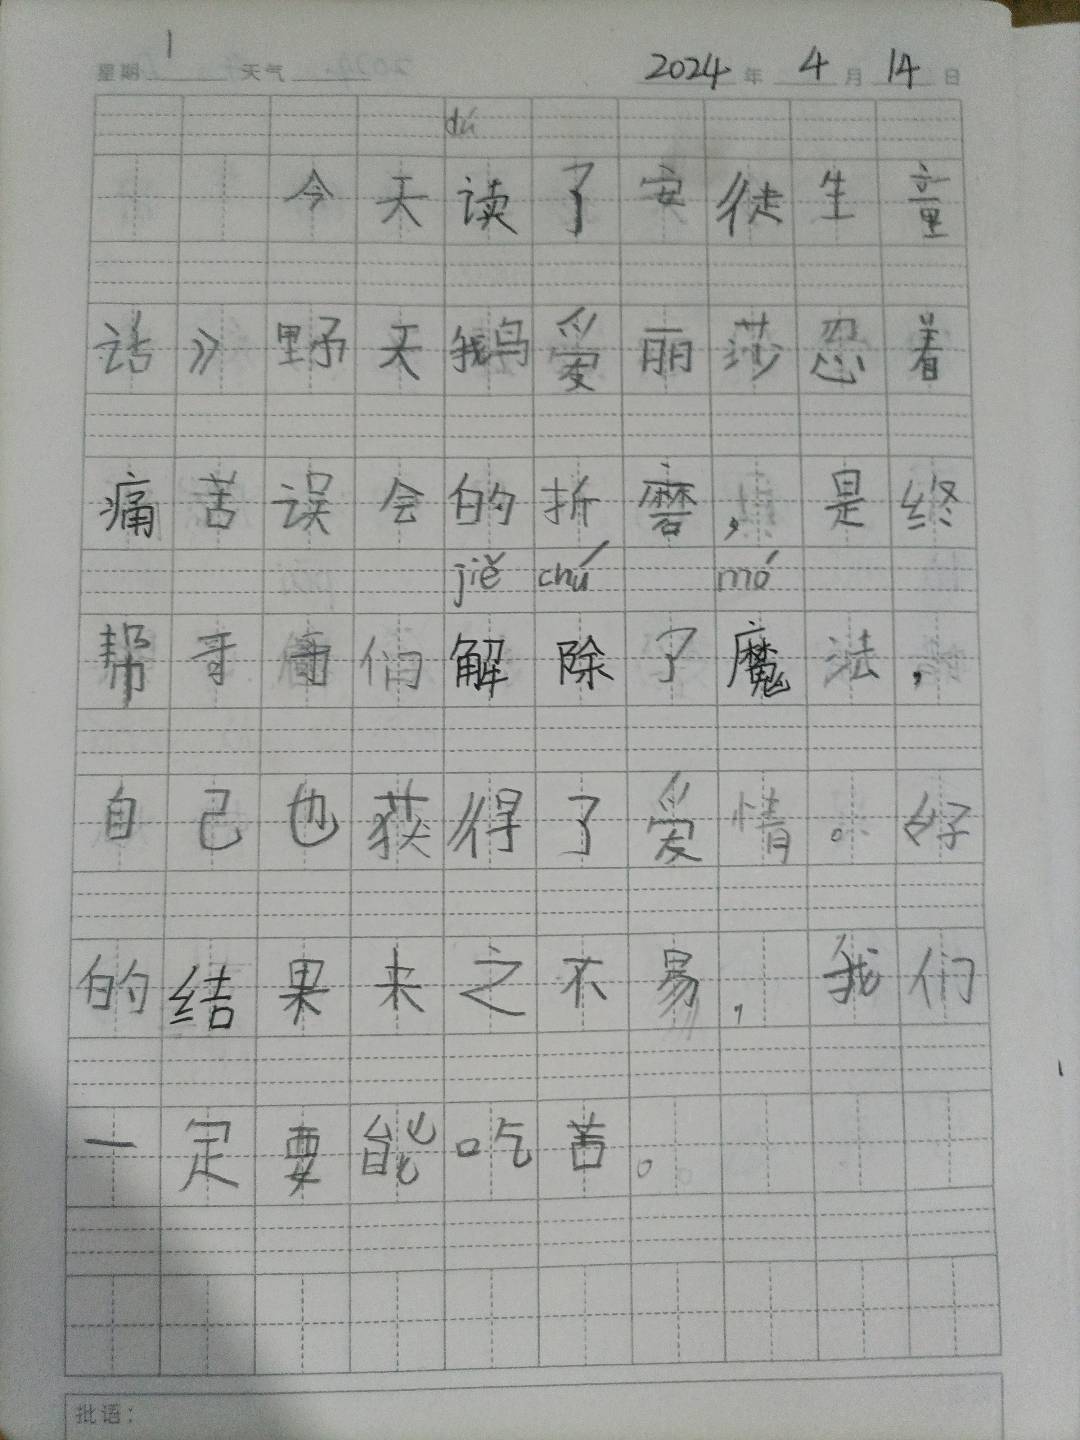 星期 1 天气 2024 年 4 月 14 日
dú
今天读了安徒生童
话》野天鹅爱丽莎忍着
痛苦误会的折磨，是终
jiě chú mó
帮哥哥们解除了魔法，
自己也获得了爱情。好
的结果来之不易，我们
一定要能吃苦。
批语：